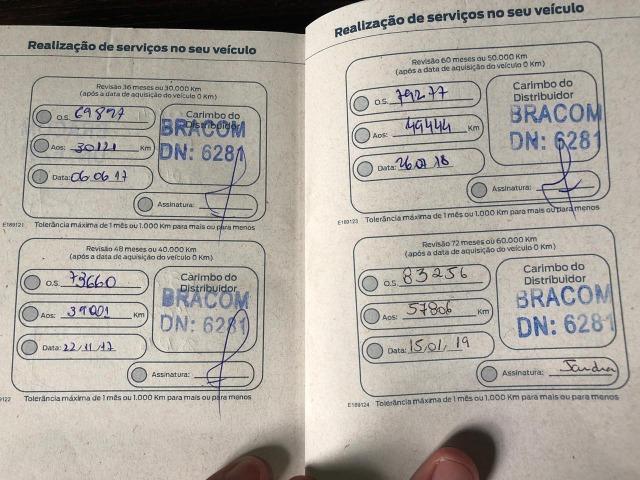 Realização de serviços no seu veículo
Revisão 36 meses ou 30.000 Km
(após a data de aquisição do veículo 0 Km)
O.S. 69897
Aos: 30121 Km
Data: 06.06.17
Carimbo do
Distribuidor
BRACOM
DN: 6281
Assinatura:
E189121 Tolerância máxima de 1 mês ou 1.000 Km para mais ou para menos
Revisão 48 meses ou 40.000 Km
(após a data de aquisição do veículo 0 Km)
O.S. 73660
Aos: 39001 Km
Data: 22.11.17
Carimbo do
Distribuidor
BRACOM
DN: 6281
Assinatura:
122 Tolerância máxima de 1 mês ou 1.000 Km para mais ou para menos
Realização de serviços no seu veículo
Revisão 60 meses ou 50.000 Km
(após a data de aquisição do veículo 0 Km)
O.S. 79277
Aos: 49444 Km
Data: 26.07.18
Carimbo do
Distribuidor
BRACOM
DN: 6281
Assinatura:
E189123 Tolerância máxima de 1 mês ou 1.000 Km para mais ou para menos
Revisão 72 meses ou 60.000 Km
(após a data de aquisição do veículo 0 Km)
O.S. 83256
Aos: 57806 Km
Data: 15.01.19
Carimbo do
Distribuidor
BRACOM
DN: 6281
Assinatura: Sandra
E189124 Tolerância máxima de 1 mês ou 1.000 Km para mais ou para menos